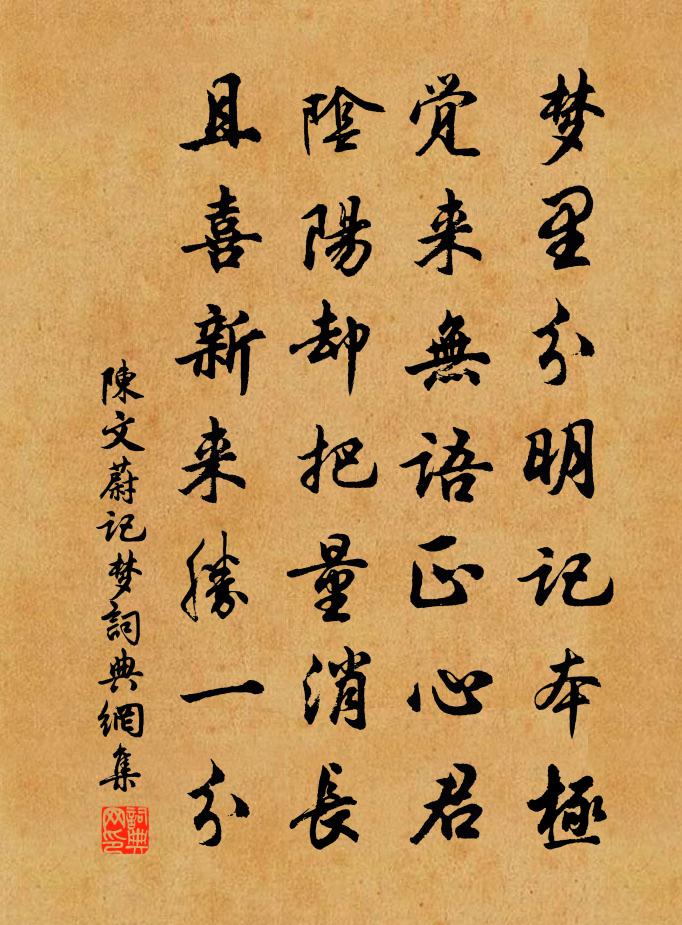 梦里分明记本極
覚来無語正心君
陰陽却把量消長
且喜新来勝一分
陳文蔚记梦詞典網集
詞典网印